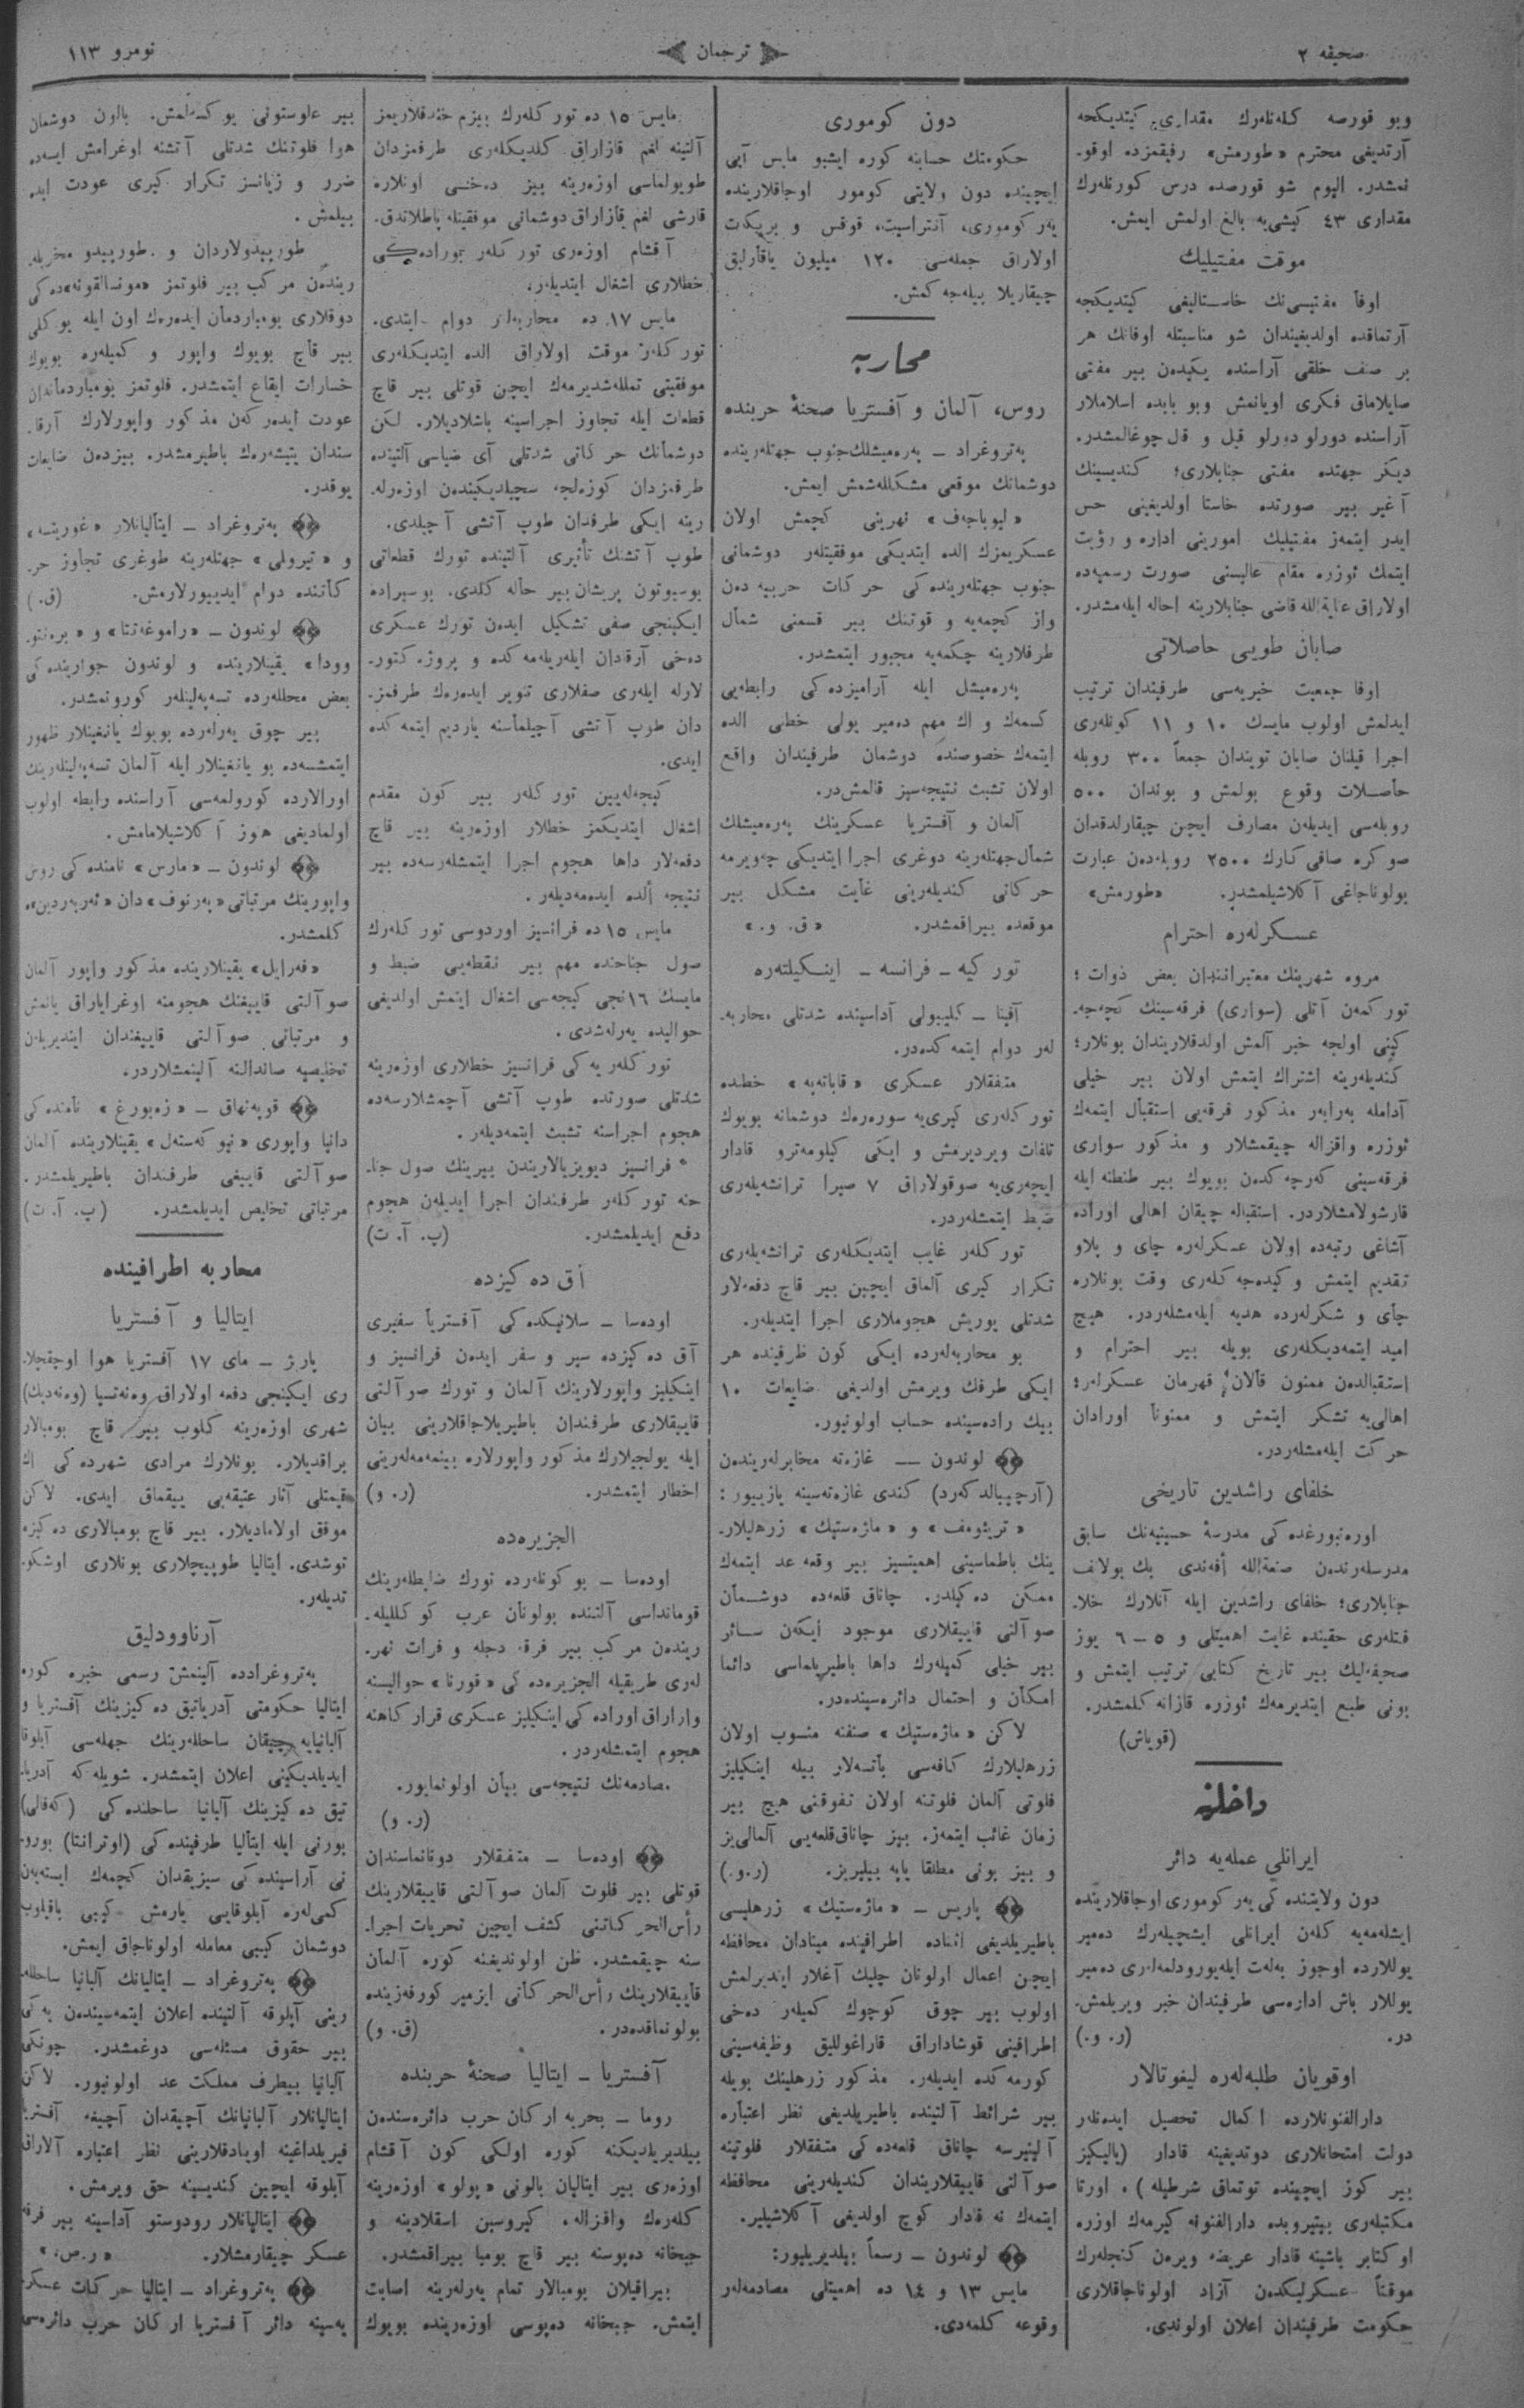 صحیفه ٢
ترجمان
نومرو ١١٣
وبو قورصه كلەنلەرك مقداری، كیتدیكجه
آرتدیغی محترم «طورمش» رفیقمزده اوقو-
نمشدر. الیوم شو قورصده درس كورنلەرك
مقداری ٤٣ كیشی‌یه بالغ اولمش ایمش.
موقت مفتیلیك
اوفا مفتیسی‌نك خاستالیغی كیتدیكجه
آرتماقده اولدیغیندان شو مناسبتله اوفانك هر
بر صنف خلقی آراسنده یكیدەن بیر مفتی
صایلاماق فكری اویانمش وبو بابده اسلاملار
آراسنده دورلو دورلو قیل و قال چوغالمشدر.
دیكر جهتده مفتی جنابلاری؛ كندیسینك
آغیر بیر صورتده خاستا اولدیغینی حس
ایدر ایتمەز مفتیلیك امورینی اداره و رؤیت
ایتمك ئوزره مقام عالیسنی صورت رسمیەده
اولاراق عنایةالله قاضی جنابلارینه احاله ایلەمشدر.
صابان طویی حاصلاتی
اوفا جمعیت خیریەسی طرفیندان ترتیب
ایدلمش اولوب مایسك ١٠ و ١١ كونلەری
اجرا قیلنان صابان تویندان جمعاً ٣٠٠٠ روبله
حاصلات وقوع بولمش و بوندان ٥٠٠
روبلەسی ایدیلەن مصارف ایچین چیقارلدقدان
صوكره صافی كارك ٢٥٠٠ روبلەدەن عبارت
بولوناجاغی آكلاشیلمشدر. «طورمش»
عسكرلەره احترام
مروه شهرینك معتبرانندان بعض ذوات؛
توركمەن آتلی (سواری) فرقەسینك كچەجە-
كینی اولجه خبر آلمش اولدقلاریندان بونلار؛
كندیلەرینه اشتراك ایتمش اولان بیر خیلی
آدامله بەرابەر مذكور فرقەیی استقبال ایتمەك
ئوزره واقزاله چیقمشلار و مذكور سواری
فرقەسینی كەرچەكدەن بویوك بیر طنطنه ایله
قارشولامشلاردر. استقباله چیقان اهالی اوراده
آشاغی رتبەده اولان عسكرلەره چای و پلاو
تقدیم ایتمش و كیدەجەكلەری وقت بونلاره
چای و شكرلەرده هدیه ایلەمشلەردر. هیچ
امید ایتمەدیكلەری بویله بیر احترام و
استقبالدەن ممنون قالان قهرمان عسكرلەر؛
اهالی‌یه تشكر ایتمش و ممنوناً اورادان
حركت ایلەمشلەردر.
خلفای راشدین تاریخی
اورەنبورغدەكی مدرسهٔ حسینیەنك سابق
مدرسلەرندەن صنعةالله أفەندی بك بولاتف
جنابلاری؛ خلفای راشدین ایله آنلارك خلا-
فتلەری حقینده غایت اهمیتلی و ٥ – ٦ یوز
صحیفەلیك بیر تاریخ كتابی ترتیب ایتمش و
بونی طبع ایتدیرمەك ئوزره قازانه كلمشدر.
(قویاش)
داخلیه
ایرانلی عملەیه دائر
دون ولایتنده كی یەر كوموری اوجاقلارینده
ایشلەمەیه كلەن ایرانلی ایشچیلەرك دەمیر
یوللارده اوجوز بەلەت ایله یورودلمەلەری دەمیر
یوللار باش ادارەسی طرفیندان خبر ویریلمش-
در. (ر. و.)
اوقویان طلبەلەره لیغوتالار
دارالفنونلارده اكمال تحصیل ایدەنلەر
دولت امتحانلاری دوتدیغینه قادار (یالیكیز
بیر كوز ایچینده توتماق شرطیله)، اورتا
مكتبلەری بیتیروبده دارالفنونه كیرمەك اوزره
اوكتابر باشینه قادار عریضه ویرەن كنجلەرك
موقتاً عسكرلیكدەن آزاد اولوناجاقلاری
حكومت طرفیندان اعلان اولوندی.
دون كوموری
حكومتك حسابنه كوره ایشبو مایس آیی
ایچینده دون ولایتی كومور اوجاقلارینده
یەر كوموری، آنتراسیت، قوقس و بریكت
اولاراق جملەسی ١٢٠ میلیون یاقارلیق
چیقاریلا بیلەجەكمش.
محاربه
روس، آلمان و آفستریا صحنهٔ حربنده
پەتروغراد – پەرەمیشلك جنوب جهتلەرینده
دوشمانك موقعی مشكللەشمش ایمش.
«لیوباچەف» نهرینی كچمش اولان
عسكریمزك الده ایتدیكی موفقیتلەر دوشمانی
جنوب جهتلەریندەكی حركات حربیه دەن
واز كچمەیه و قوتنك بیر قسمنی شمال
طرفلارینه چكمەیه مجبور ایتمشدر.
پەرەمیشل ایله آرامیزدەكی رابطەیی
كسمەك و اك مهم دەمیر یولی خطی الده
ایتمەك خصوصنده دوشمان طرفیندان واقع
اولان تشبث نتیجەسیز قالمش‌در.
آلمان و آفستریا عسكرینك پەرەمیشلك
شمال جهتلەرینه دوغری اجرا ایتدیكی چەویرمه
حركاتی كندیلەرینی غایت مشكل بیر
موقعده بیراقمشدر. «ق. و.»
توركیه – فرانسه – اینكیلتەره
آفینا – كلیبولی آداسینده شدتلی محاربه-
لەر دوام ایتمەكدەدر.
متفقلار عسكری «قاباتەپه» خطنده
توركلەری كیری‌یه سورەرەك دوشمانه بویوك
تلفات ویردیرمش و ایكی كیلومەترو قادار
ایچەری‌یه صوقولاراق ٧ صیرا ترانشەیلەری
ضبط ایتمشلەردر.
توركلەر غایب ایتدیكلەری ترانشەیلەری
تكرار كیری آلماق ایچین بیر قاچ دفعەلار
شدتلی یوریش هجوملاری اجرا ایتدیلەر.
بو محاربەلەرده ایكی كون ظرفینده هر
ایكی طرفك ویرمش اولدیغی ضایعات ١٠
بیك رادەسینده حساب اولونیور.
لوندون — غازەته مخابرلەریندەن
(آرچیبالد كەرد) كندی غازەتەسینه یازییور:
«تریئومف» و «ماژەستیك» زرهلیلار-
ینك باطماسینی اهمیتسیز بیر وقعه عد ایتمەك
ممكن دەكیلدر. چاناق قلعەده دوشمان
صوآلتی قاییقلاری موجود ایكەن سائر
بیر خیلی كمیلەرك داها باطیریلماسی دائما
امكان و احتمال دائرەسیندەدر.
لاكن «ماژەستیك» صنفنه منسوب اولان
زرهلیلارك كافەسی باتسەلار بیله اینكیلیز
فلوتی آلمان فلوتنه اولان تفوقنی هیچ بیر
زمان غائب ایتمەز. بیز چاناق‌قلعەیی آلمالی‌یز
و بیز بونی مطلقا یاپه بیلیریز. (ر.و.)
پاریس – «ماژەستیك» زرهلیسی
باطیریلدیغی اثناده اطرافینده مینادان محافظه
ایچین اعمال اولونان چلیك آغلار ایندیرلمش
اولوب بیر چوق كوچوك كمیلەر دەخی
اطرافینی قوشاداراق قاراغوللیق وظیفەسینی
كورمەكده ایدیلەر. مذكور زرهلینك بویله
بیر شرائط آلتینده باطیریلدیغی نظر اعتباره
آلینیرسه چاناق قلعەدەكی متفقلار فلوتینه
صوآلتی قاییقلاریندان كندیلەرینی محافظه
ایتمەك نه قادار كوچ اولدیغی آكلاشیلیر.
لوندون – رسماً بیلدیریلیور:
مایس ١٣ و ١٤ ده اهمیتلی مصادمەلەر
وقوعه كلمەدی.
مایس ١٥ ده توركلەرك بیزم خندقلاریمز
آلتینه لغم قازاراق كلدیكلەری طرفمزدان
طویولماسی اوزەرینه بیز دەخی اونلاره
قارشی لغم قازاراق دوشمانی موفقیتله پاطلاتدق.
آقشام اوزەری توركلەر بورادەكی
خطلاری اشغال ایتدیلەر.
مایس ١٧ ده محاربەلەر دوام ایتدی.
توركلەر موقت اولاراق الده ایتدیكلەری
موفقیتی تمللەشدیرمەك ایچین قوتلی بیر قاچ
قطعات ایله تجاوز اجراسینه باشلادیلار. لكن
دوشمانك حركاتی شدتلی آی ضیاسی آلتینده
طرفمزدان كوزەلجه سچیلدیكیندەن اوزەرلە-
رینه ایكی طرفدان طوپ آتشی آچیلدی.
طوپ آتشنك تأثیری آلتینده تورك قطعاتی
بوسبوتون پریشان بیر حاله كلدی. بوسیراده
ایكینجی صفی تشكیل ایدەن تورك عسكری
دەخی آرقادان ایلەریلەمەكده و پروژەكتور-
لارله ایلەری صفلاری تنویر ایدەرەك طرفمز-
دان طوپ آتشی آچیلماسنه یاردیم ایتمەكده
ایدی.
كیجەلەیین توركلەر بیر كون مقدم
اشغال ایتدیكمز خطلار اوزەرینه بیر قاچ
دفعەلار داها هجوم اجرا ایتمشلەرسەده بیر
نتیجه ألده ایدەمەدیلەر.
مایس ١٥ ده فرانسیز اوردوسی توركلەرك
صول جناحنده مهم بیر نقطەیی ضبط و
مایسك ١٦نجی كیجەسی اشغال ایتمش اولدیغی
حوالیده یەرلەشدی.
توركلەر یەكی فرانسیز خطلاری اوزەرینه
شدتلی صورتده طوپ آتشی آچمشلارسەده
هجوم اجراسنه تشبث ایتمەدیلەر.
* فرانسیز دیویزیالاریندن بیرینك صول جنا-
حنه توركلەر طرفندان اجرا ایدیلەن هجوم
دفع ایدیلمشدر. (پ. آ. ت)
آق دەكیزده
اودەسا – سلانیكدەكی آفستریا سفیری
آق دەكیزده سیر و سفر ایدەن فرانسیز و
اینكیلیز واپورلارینك آلمان و تورك صوآلتی
قاییقلاری طرفندان باطیریلاجاقلارینی بیان
ایله یولجیلارك مذكور واپورلاره بینمەمەلەرینی
اخطار ایتمشدر. (ر. و)
الجزیرەده
اودەسا – بو كونلەرده تورك ضابطلەرینك
قوماندانسی آلتنده بولونان عرب كوكللیلە-
ریندەن مركب بیر فرقه دجله و فرات نهر-
لەری طریقیله الجزیرەدەكی «قورنا» حوالیسنه
واراراق اورادەكی اینكیلیز عسكری قراركاهنه
هجوم ایتمشلەردر.
مصادمەنك نتیجەسی بیان اولونمایور.
(ر. و)
اودەسا – متفقلار دونانماسندان
قوتلی بیر فلوت آلمان صوآلتی قاییقلارینك
رأس‌الحركاتنی كشف ایچین تحریات اجرا-
سنه چیقمشدر. ظن اولوندیغنه كوره آلمان
قاییقلارینك رأس‌الحركاتی ازمیر كورفەزینده
بولونماقدەدر. (ق. و)
آفستریا – ایتالیا صحنهٔ حربنده
روما – بحریه اركان حرب دائرەسندەن
بیلدیریلدیكنه كوره اولكی كون آقشام
اوزەری بیر ایتالیان بالونی «پولو» اوزەرینه
كلەرەك واقزاله، كیروسین اسقلادینه و
جبخانه دەپوسنه بیر قاچ بومبا بیراقمشدر.
بیراقیلان بومبالار تمام یەرلەرینه اصابت
ایتمش. جبخانه دەپوسی اوزەرینده بویوك
بیر علوستونی یوكسەلمش. بالون دوشمان
هوا فلوتنك شدتلی آتشنه اوغرامش ایسەده
ضرر و زیانسز تكرار كیری عودت ایده
بیلمش.
طورپیدولاردان و طورپیدو مخربلە-
ریندەن مركب بیر فلوتمز «مونفالقونه»دەكی
دوقلاری بومباردمان ایدەرەك اون ایله یوكلی
بیر قاچ بویوك واپور و كمیلەره بویوك
خسارات ایقاع ایتمشدر. فلوتمز بومباردماندان
عودت ایدەركەن مذكور واپورلارك آرقا-
سندان یتیشەرەك باطیرمشدر. بیزدەن ضایعات
یوقدر.
پەتروغراد – ایتالیانلار «غوریتسه»
و «تیرولی» جهتلەرینه طوغری تجاوز حر-
كاتنده دوام ایدییورلارمش. (ق.)
لوندون – «راموغەتنا» و «برەنتو-
وودا» یقینلارینده و لوندون جواریندەكی
بعض محللەرده تسەپەلینلەر كورونمشدر.
بیر چوق یەرلەرده بویوك یانغینلار ظهور
ایتمشسەده بو یانغینلار ایله آلمان تسەپەلینلەرینك
اورالارده كورولمەسی آراسنده رابطه اولوب
اولمادیغی هنوز آكلاشیلامامش.
لوندون – «مارس» نامنده كی روس
واپورینك مرتباتی «بەرنوف»دان «ئەربەردین»ه
كلمشدر.
«فەرایل» یقینلارینده مذكور واپور آلمان
صوآلتی قاییغنك هجومنه اوغرایاراق یانمش
و مرتباتی صوآلتی قاییغندان ایندیریلەن
تخلیصیه صاندالنه آلینمشلاردر.
قوپەنهاق – «زەبورغ» نامنده كی
دانیا واپوری «نیوكەستەل» یقینلارینده آلمان
صوآلتی قاییغی طرفندان باطیریلمشدر.
مرتباتی تخلیص ایدیلمشدر. (پ. آ. ت)
محاربه اطرافینده
ایتالیا و آفستریا
پارژ – مای ١٧ آفستریا هوا اوچقچلا-
ری ایكینجی دفعه اولاراق وەنەتسیا (وەنەدیك)
شهری اوزەرینه كلوب بیر قاچ بومبالار
براقدیلار. بونلارك مرادی شهردەكی اك
قیمتلی آثار عتیقەیی ییقماق ایدی. لاكن
موفق اولامادیلار. بیر قاچ بومبالاری دەكیزه
توشدی. ایتالیا طوپچیلاری بونلاری اوشكو-
تدیلەر.
آرناوودلیق
پەتروغرادده آلینمش رسمی خبره كوره
ایتالیا حكومتی آدریاتیق دەكیزینك آفستریا و
آلبانیایه چیقان ساحللەرینك جملەسی آبلوقا
ایدیلدیكینی اعلان ایتمشدر. شویله كه آدریا-
تیق دەكیزینك آلبانیا ساحلندەكی (كەفالی)
بورنی ایله ایتالیا طرفیندەكی (اوترانتا) بورو-
نی آراسیندەكی سیزیقدان كچمەك ایستەین
كمی‌لەره آبلوقایی یارمش كیبی باقیلوب
دوشمان كیبی معامله اولوناجاق ایمش.
پەتروغراد – ایتالیانك آلبانیا ساحللە-
رینی آبلوقه آلتینده اعلان ایتمەسیندەن یەكی
بیر حقوق مسئلەسی دوغمشدر. چونكی
آلبانیا بیطرف مملكت عد اولونیور. لاكن
ایتالیانلار آلبانیانك آچیقدان آچیغه آفستریا
فیریلداغینه اویادقلارینی نظر اعتباره آلاراق
آبلوقه ایچین كندیسینه حق ویرمش.
ایتالیانلار رودوستو آداسینه بیر فرقه
عسكر چیقارمشلار. «ر. ص.»
پەتروغراد – ایتالیا حركات عسكر-
یەسینه دائر آفستریا اركان حرب دائرەسی